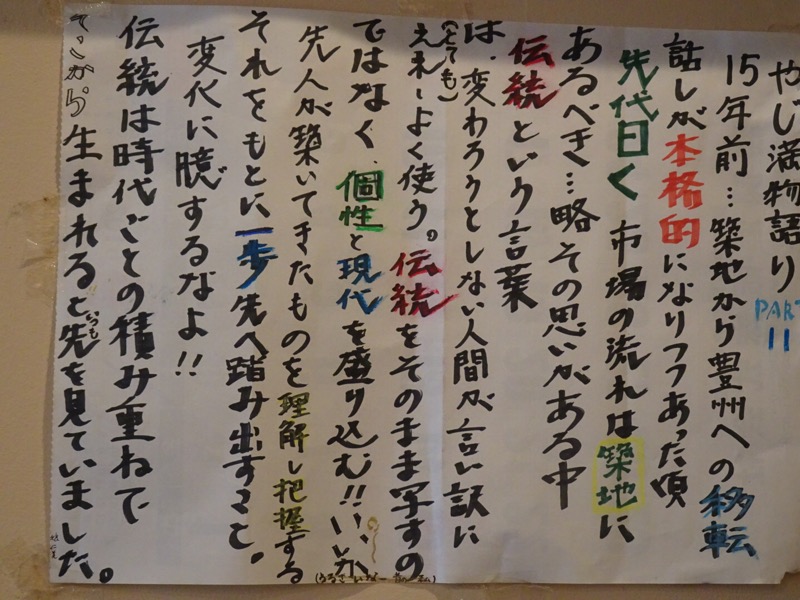 やじ満物語り PART 11
15年前…築地から豊洲への移転
話しが本格的になりつつあった頃
先代曰く 市場の流れは築地に
あるべき…略 その思いがある中
伝統という言葉
は、変わろうとしない人間が言い訳に
(とても)
えれーよく使う。伝統をそのまま写すの
ではなく、個性と現代を盛り込む!!いいか
(うるさーいなー
先人が築いてきたものを理解し把握する
それをもとに一歩先へ踏み出すこと。
変化に臆するなよ!!
伝統は時代ごとの積み重ねで
そこから生まれると先を見ていました。
いつも